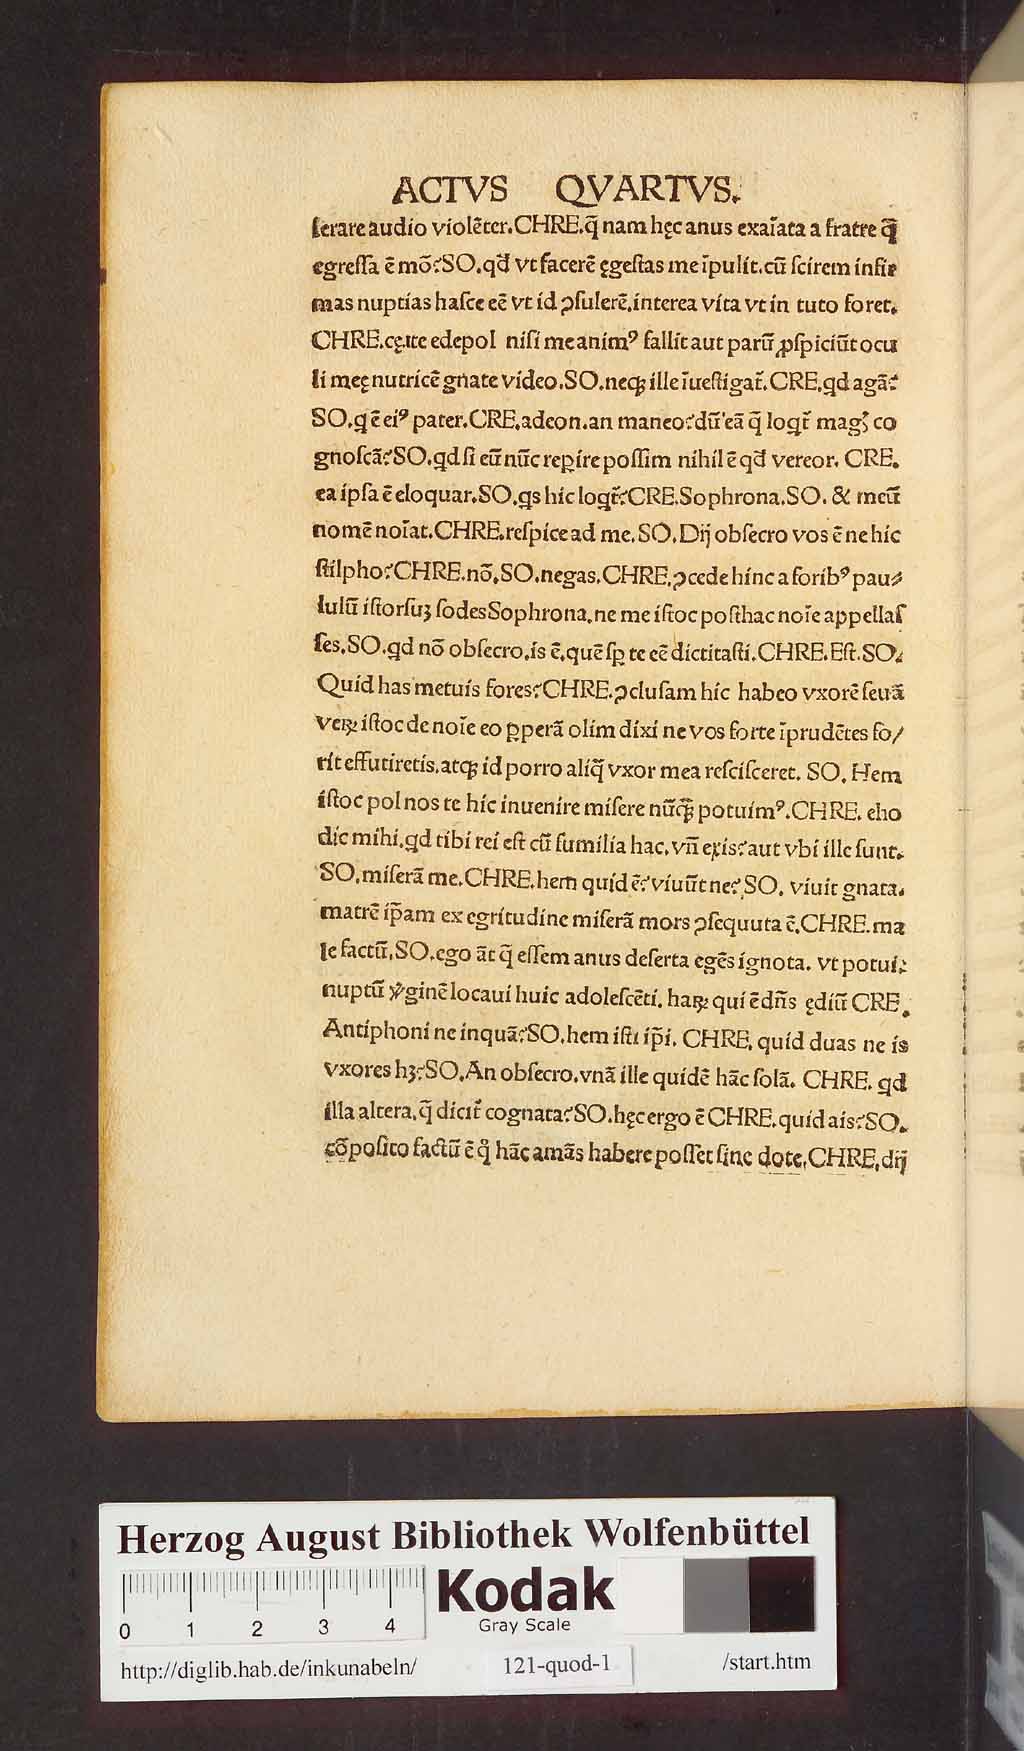 ACTVS QVARTVS.
ſerare audio violēter.CHRE.q̄ nam hęc anus exaīata a fratre q̄
egreſſa ē mō?SO.qd̄ vt facerē ęgeſtas me īpulit.cū ſcirem infir
mas nuptias haſce eē vt id ꝯſulerē.interea vita vt in tuto foret.
CHRE.cęrte edepol niſi me animꝰ fallit aut parū ꝓſpiciūt ocu
li meę nutricē gnate video.SO.neqꝫ ille īueſtigat᷑.CRE.qd agā?
SO.q ē eiꝰ pater.CRE.adeon.an maneo?dū eā q̄ loqt᷑ magꝭ co
gnoſcā?SO.qd ſi eū nūc reꝑire poſſim nihil ē qd̄ vereor. CRE.
ea ipſa ē eloquar.SO.qs hic loqt᷑?CRE.Sophrona.SO. & meū
nomē noīat.CHRE.reſpice ad me.SO.Dij obſecro vos ē ne hic
ſtilpho?CHRE.nō.SO.negas.CHRE.ꝯcede hinc a foribꝰ pau⸗
lulū iſtorſuꝫ ſodes Sophrona.ne me iſtoc poſthac noīe appellaſ
ſes.SO.qd nō obſecro.is ē.quē ſꝑ te eē dictitaſti.CHRE.Eſt.SO.
Quid has metuis fores?CHRE.ꝯcluſam hic habeo vxorē ſeuā
Veꝝ iſtoc de noīe eo ꝑperā olim dixi ne vos forte īprudētes fo/
rit effutiretis.atqꝫ id porro aliq̄ vxor mea reſciſceret. SO. Hem
iſtoc pol nos te hic inuenire miſere nūqꝫ̄ potuimꝰ.CHRE. eho
dic mihi.qd tibi rei eſt cū fumilia hac.vn̄ exis?aut vbi ille ſunt.
SO.miſerā me.CHRE.hem quid ē?viuūt ne?SO. viuit gnata.
matrē ip̄am ex egritudine miſerā mors ꝯſequuta ē.CHRE.ma
le factū.SO.ego āt q̄ eſſem anus deſerta egēs ignota. vt potui.
nuptū v̓ginē locaui huic adoleſcēti. haꝝ qui ē dn̄s ędiū CRE.
Antiphoni ne inquā?SO.hem iſti ip̄i. CHRE. quid duas ne is
vxores hꝫ?SO.An obſecro.vnā ille quidē hāc ſolā. CHRE. qd
illa altera.q̄ dicit᷑ cognata?SO.hęc ergo ē CHRE.quid ais?SO.
cōpoſito factū ē qͦ hāc amās habere poſſet ſine dote.CHRE.dij
Herzog August Bibliothek Wolfenbüttel
0 1 2 3 4
Kodak
Gray Scale
http://diglib.hab.de/inkunabeln/ 121-quod-1 /start.htm